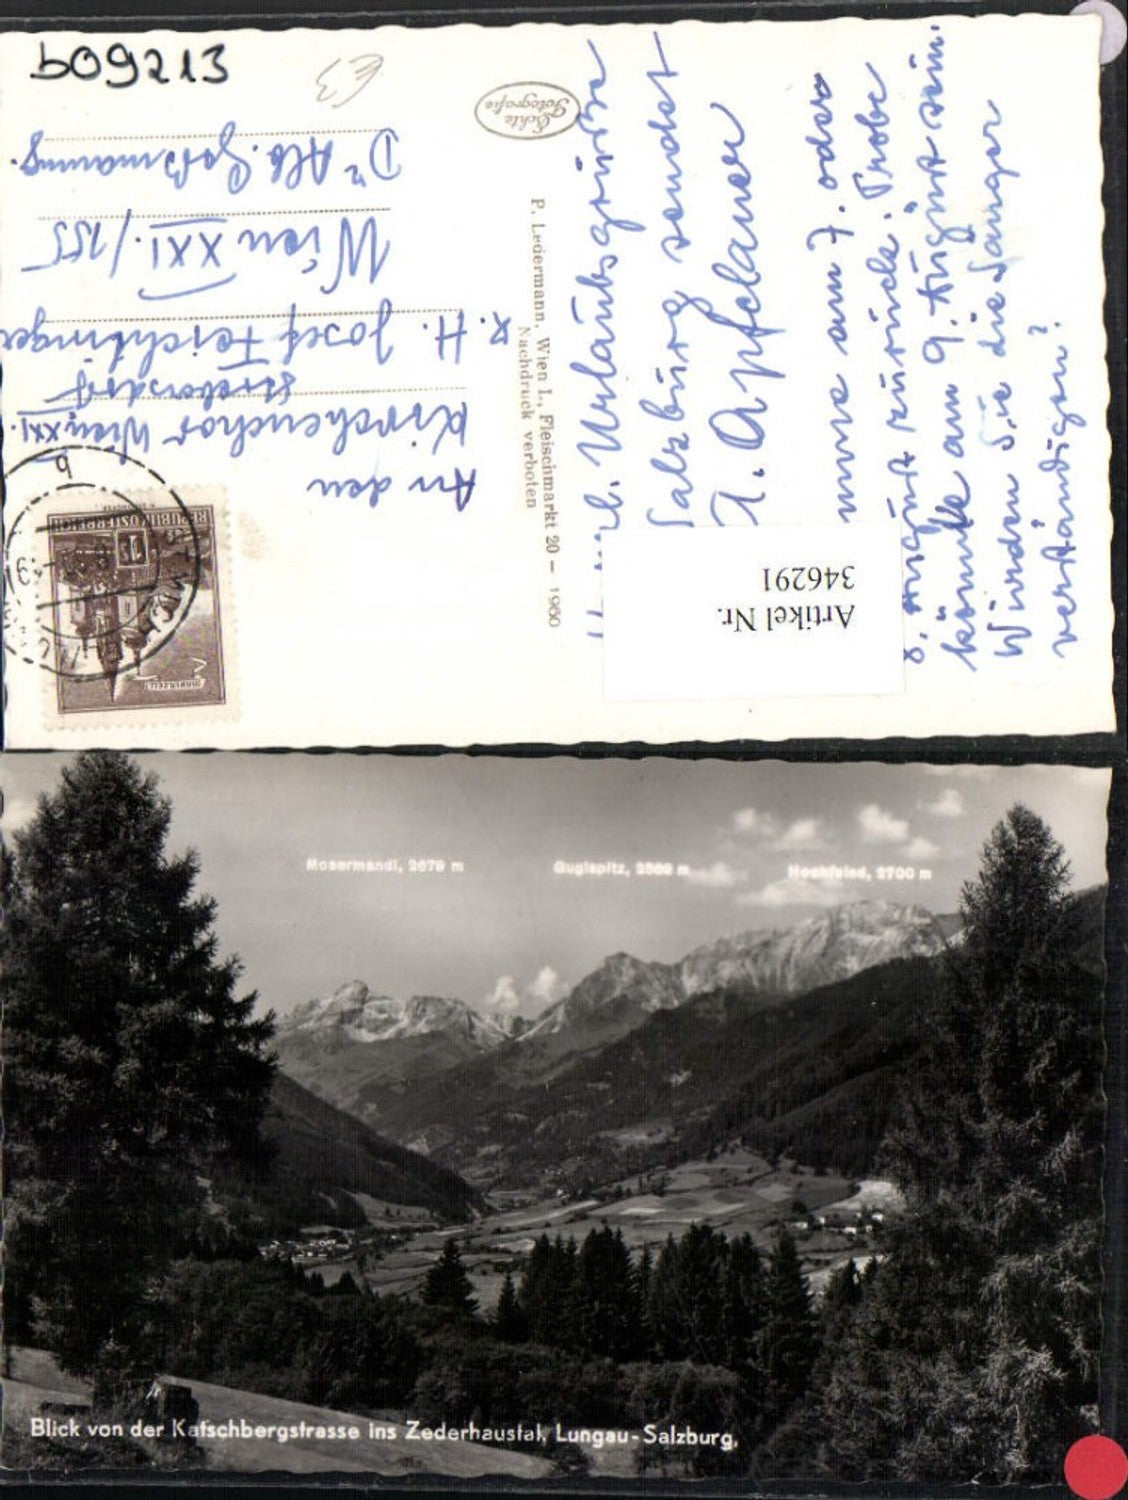 b09213
€3
Echte
Fotografie
P. Ledermann, Wien I., Fleischmarkt 20 – 1960
Nachdruck verboten
An den
Kirchenchor Wien XXI.
Strebersdorf
z. H. Josef Feichtinger
Wien XXI./155
Dr Alb. Geßmanng.
REPUBLIK ÖSTERREICH
MARIAZELL
Urlaubsgrüße
Salzburg sendet
T. Apfelauer
am 7. oder
8. August zurück. Probe
könnte am 9. August sein.
Würden Sie die Sänger
verständigen?
Artikel Nr.
346291
Mosermandl, 2679 m
Guglspitz, m
Hochfeind, 2700 m
Blick von der Katschbergstrasse ins Zederhaustal, Lungau-Salzburg.